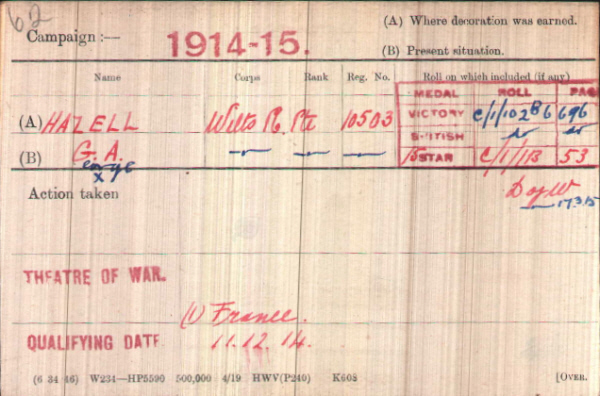 62
(A) Where decoration was earned.
Campaign :— 1914-15.
(B) Present situation.
Name Corps Rank Reg. No. Roll on which included (if any)
MEDAL ROLL PAGE
(A) HAZELL Wilts R. Pte 10503 VICTORY C/1/102B6 696
BRITISH do do
(B) G. A. — — — 15 STAR C/1/1B 53
eorge
x
Action taken D of W
17.3.15
THEATRE OF WAR.
(1) France.
QUALIFYING DATE 11.12.14.
(6 34 46) W234—HP5590 500,000 4/19 HWV(P240) K608 [OVER.